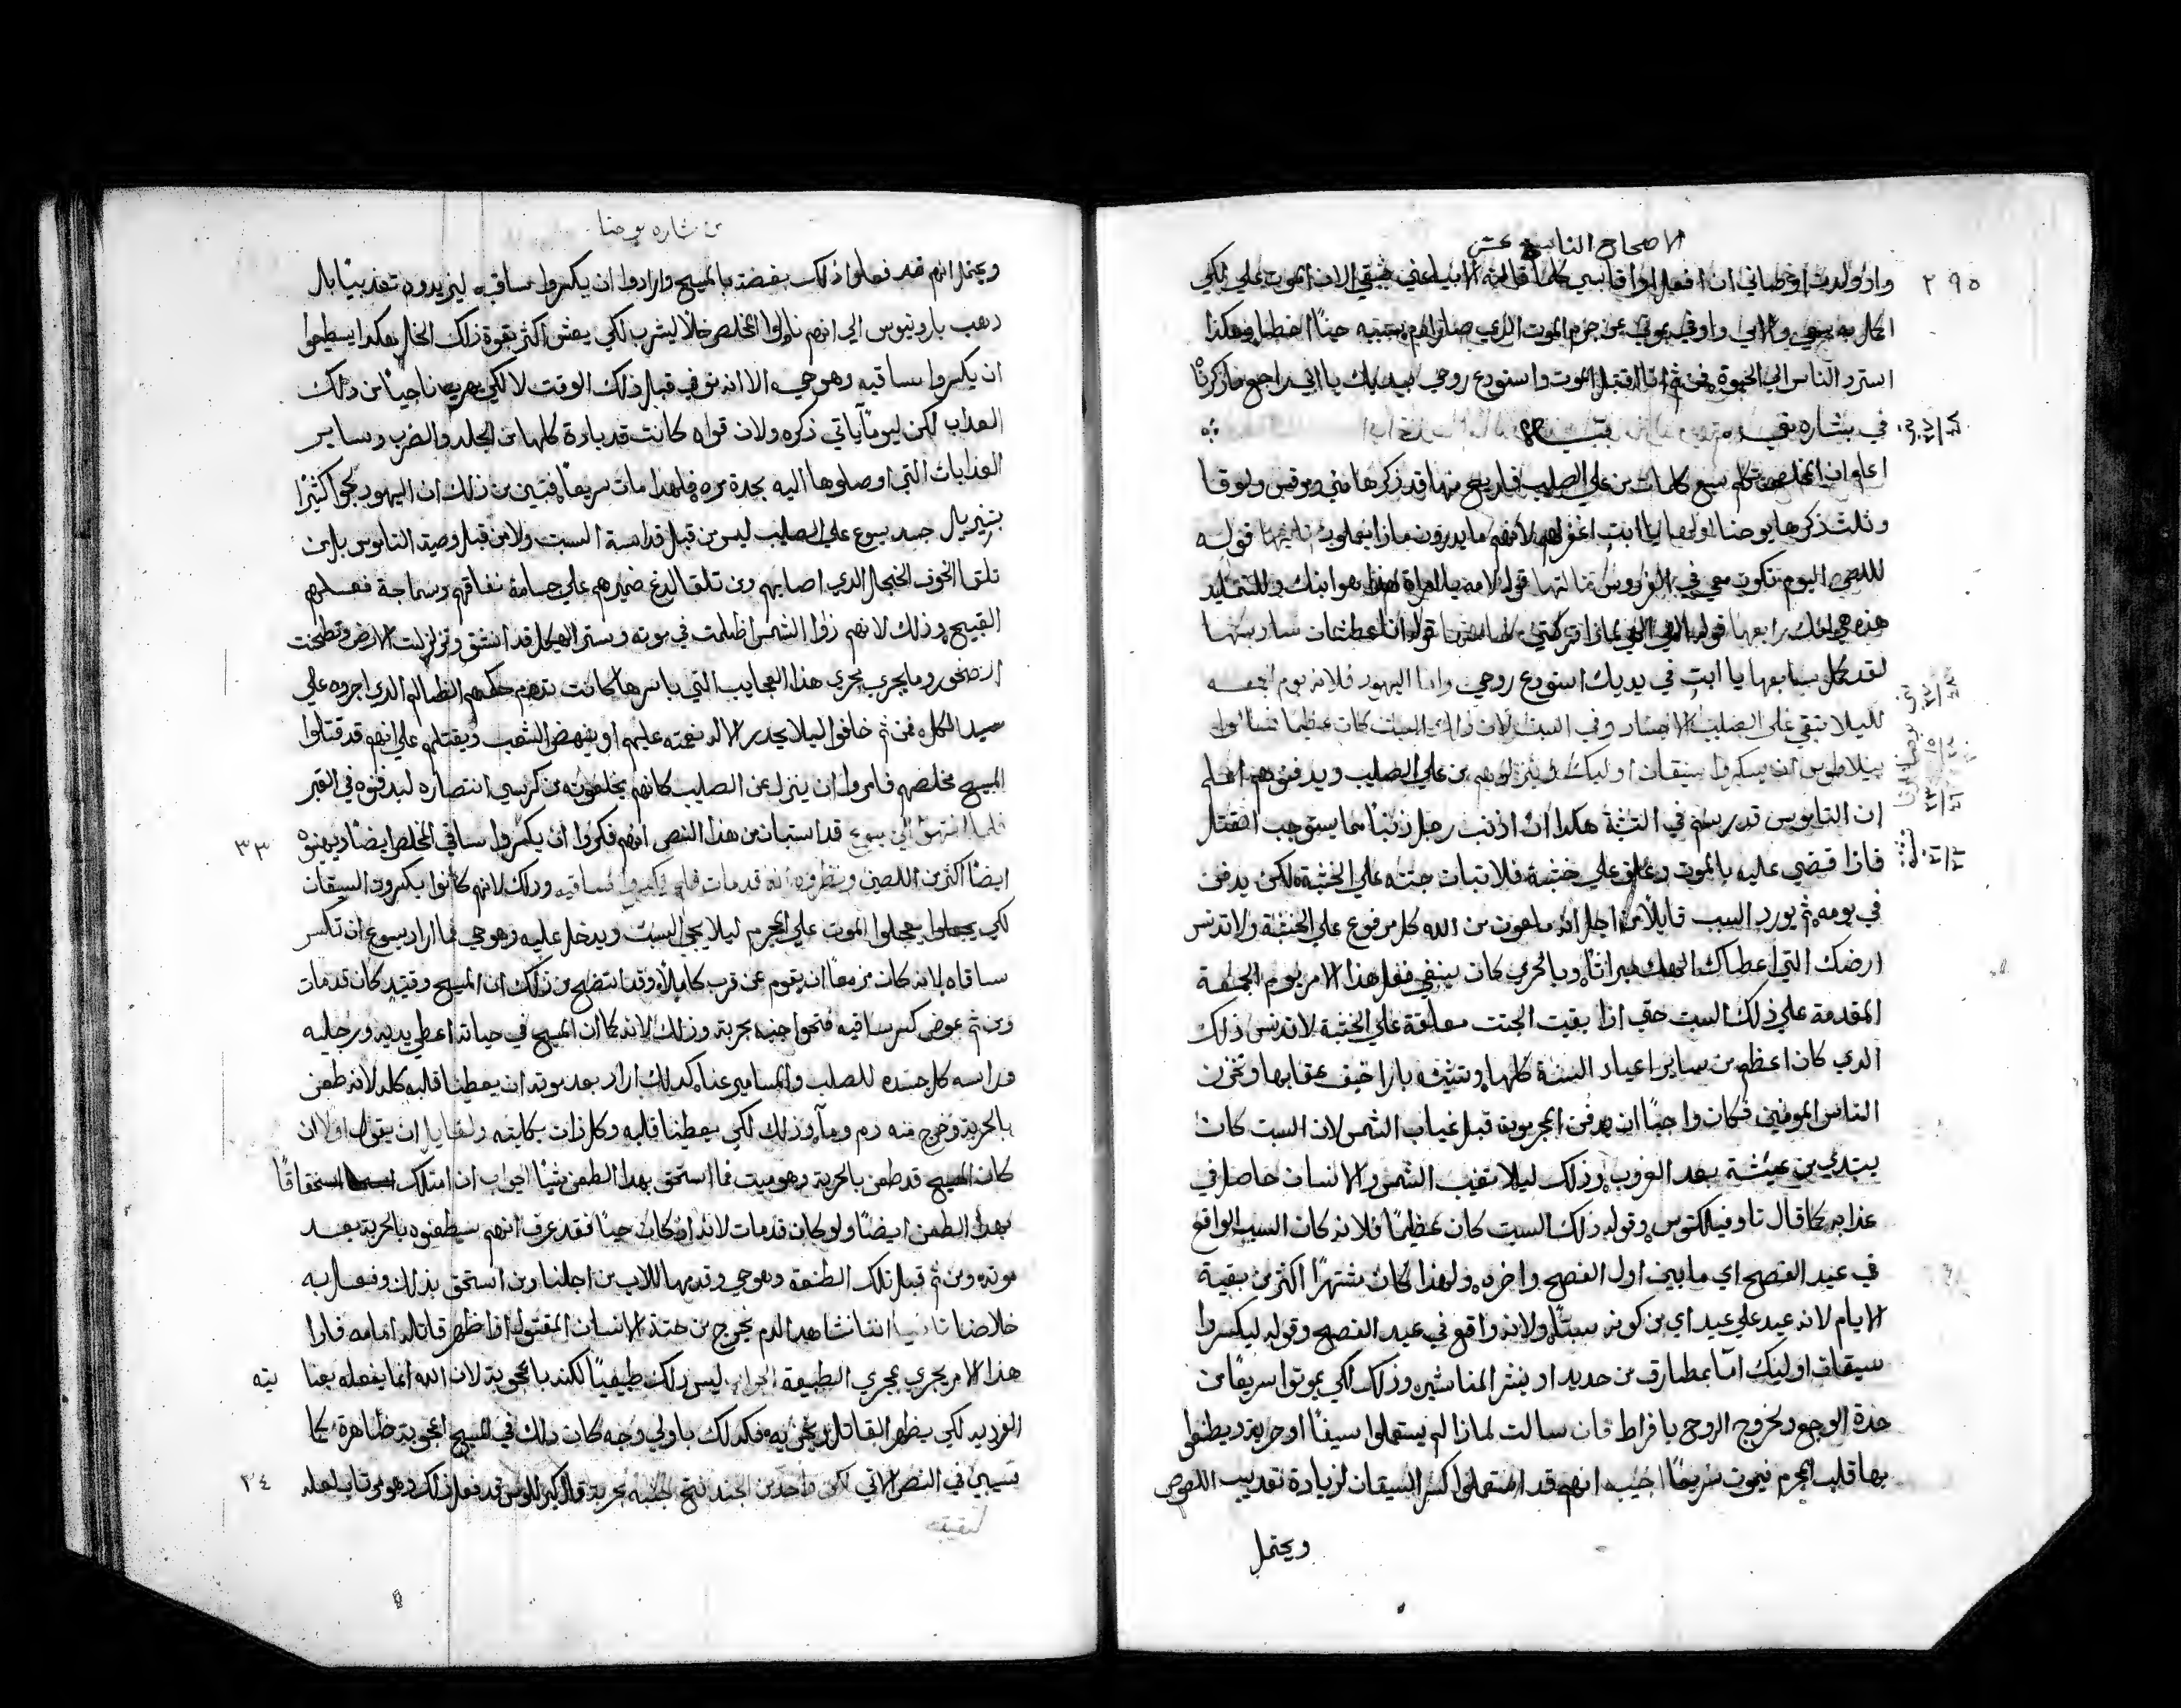 الاصحاح التاسع عشر
٢٩٥
واذ ولدت اوصاني ان افعل واقاسي كلما قالته الانبيا عني فبقي الان الموت علي لكي
اكمل به وابي واوفي بموتي عن جرم الموت الذي صار ادم بسببه حينا اخطا وهكذا
استرد الناس الي الحيوة فمن ثم انا اقتبل الموت واستودع روحي بيديك يا ابي راجع ما ذكرنا
في بشاره متي
اعلم ان المخلص تكلم سبع كلمات من علي الصليب فاربع منها قد ذكرها متي ومرقس ولوقا
وثلث ذكرها يوحنا اولها يا ابت اغفر لهم لانهم ما يدرون ماذا يعملون ثانيها قوله
للص اليوم تكون معي في الفردوس ثالثها قوله لامه يا امراة هذا هو ابنك وللتلميذ
هذه هي امك رابعها قوله الهي الهي لماذا تركتني خامسها قوله انا عطشان سادسها
لقد كمل سابعها يا ابت في يديك استودع روحي واما اليهود فلانه يوم الجمعه
لليلا تبقي علي الصليب الاجساد وفي السبت لان ذلك السبت كان عظيما فسالوا
بيلاطوس ان يكسروا سيقان اوليك وينزلوهم من علي الصليب ويدفنوهم اعلم
ان الناموس قد رسم في التثنية هكذا ان اذنب رجل ذنبا مما يستوجب القتل
فاذا قضي عليه بالموت وعلق علي خشبة فلا تبات جثته علي الخشبة لكن يدفن
في يومه ثم يورد السبب قايلا من اجل انه ملعون من الله كل مرفوع علي الخشبة ولا تدنس
ارضك التي اعطاك الهك ميراثا وبالحري كان ينبغي فعل هذا الامر يوم الجمعة
المقدمة علي ذلك السبت حتي اذا بقيت الجثث معلقة علي الخشبة لا تدنس ذلك
الذي كان اعظم من ساير اعياد السنة كلها
الناس المومنين فكان واجبا ان يدفن المجرمون قبل غياب الشمس لان السبت كان
يبتدي من عيشة بعد الغروب وذلك ليلا تغيب الشمس والانسان حاصل في
عذابه كما قال تاوفيلكتوس وقوله ذلك السبت كان عظيما فلانه كان السبت الواقع
في عيد الفصح اي ما بين اول الفصح واخره ولهذا كان مشتهرا اكثر من بقية
الايام لانه عيد علي عيد اي من كونه سبتا ولانه واقع في عيد الفصح وقوله ليكسروا
سيقان اوليك اما بمطارق من حديد او بنشر المناشير وذلك لكي يموتوا سريعا من
حدة الوجع ولخروج الروح بافراط فان سالت لماذا لم يستعملوا سيفا او حربة ويطعنوا
بها قلب المجرم فيموت سريعا اجيب انهم قد استعملوا كسر السيقان لزيادة تعذيب اللصوص
ويحتمل
من بشاره يوحنا
ويحتمل انهم قد فعلوا ذلك بغضة بالمسيح وارادوا ان يكسروا ساقيه ليزيدوه تعذيبا بل
ذهب بارونيوس الي انهم ناولوا المخلص خلا ليشرب لكي يعش اكثر بقوة ذلك الخل وهكذا يستطيعوا
ان يكسروا ساقيه وهو حي الا انه توفي قبل ذلك الوقت لا لكي يهرب ناجيا من ذلك
العذاب لكن ليوما ياتي ذكره ولان قواه كانت قد بادة كلها من الجلد والضرب وساير
العذابات التي اوصلوها اليه بجدة مره فلهذا مات سريعا فتبين من ذلك ان اليهود لجوا كثيرا
بتنزيل جسد يسوع علي الصليب ليس من قبل قداسة السبت ولا من قبل وصية الناموس بل من
تلقا الخوف الخيجل الذي اصابهم ومن تلقا لدغ ضميرهم علي جسامة نفاقهم وسماجة فعلهم
القبيح وذلك لانهم راوا الشمس اظلمت في موته وستر الهيكل قد انشق وتزلزلت الارض وتطحنت
الصخور وما يجري مجري هذا العجايب التي باسرها كانت تدهم حكمهم الظالم الذي اجروه علي
سيد الكل فمن ثم خافوا ليلا يحدر الاله نقمته عليهم او ينهض الشعب ويقتلهم علي انهم قد قتلوا
المسيح مخلصهم فامروا ان ينزل عن الصليب كانهم يخلعونه من كرسي انتصاره ليدفنوه في القبر
٣٣
فلما انتهوا الي يسوع قد استبان من هذا النص انهم فكروا ان يكسروا ساقي المخلص ايضا ويهينوه
ايضا اكثر من اللصين ونظروه انه قد مات فلم يكسروا ساقيه وذلك لانهم كانوا يكسرون السيقان
لكي يعجلوا الموت علي المجرم ليلا يجي السبت ويدخل عليه وهو حي فما اراد يسوع ان تكسر
ساقاه لانه كان مزمعا ان يقوم عن قرب كاملا وقد اتضح من ذلك ان المسيح وقتيذ كان قد مات
ومن ثم عوض كسر ساقيه فتحوا جنبه بحربة وذلك لانه كما ان المسيح في حياته اعطي يديه ورجليه
وراسه كل جسده للصلب والمسامير عنا كذلك اراد بعد موته ان يعطينا قلبه كله لانه طعن
بالحربة وخرج منه دم وماء وذلك لكي يعطينا قلبه وكل ذات بكليته ولقايل ان يقول اولا ان
كان المسيح قد طعن بالحربة وهو ميت فما استحق بهذا الطعن شيا الجواب ان امتلك استحقاقا
بهذا الطعن ايضا ولو كان قد مات لانه اذ كان حيا فقد عرف انهم سيطعنوه بالحربة بعد
موته ومن ثم قبل تلك الطعنة وهو حي وقدمها للاب من اجلنا ومن استحق بذلك وفعل به
خلاصنا ثانيا اننا نشاهد الدم يخرج من جثة الانسان المقتول اذا ظهر قاتله امامه فاذا
هذا الامر يجري مجري الطبيعة الجواب ليس ذلك طبيعيا لكنه باعجوبة لان الله انما يفعله بعنايته
الفريد لكي يظهر القاتل فكذلك باولي وجه كان ذلك في المسيح اعجوبة ظاهرة كما
٣٤
سيبين في النص الاتي لكن واحد من الجند فتح جنبه بحربة قد فعل ذلك وهو